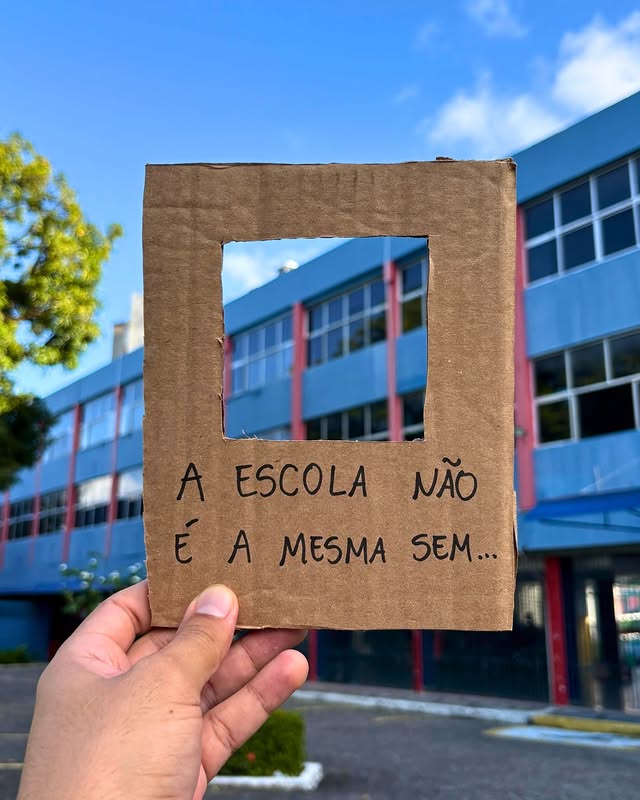 A ESCOLA NÃO
É A MESMA SEM...